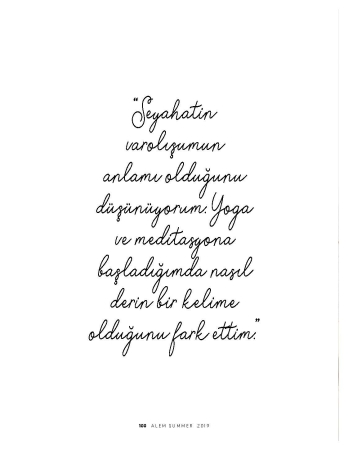 “Seyahatin
varolışumun
anlamı olduğunu
düşünüyorum. Yoga
ve meditasyona
başladığımda nasıl
derin bir kelime
olduğunu fark ettim.”
100 ALEM SUMMER 2019